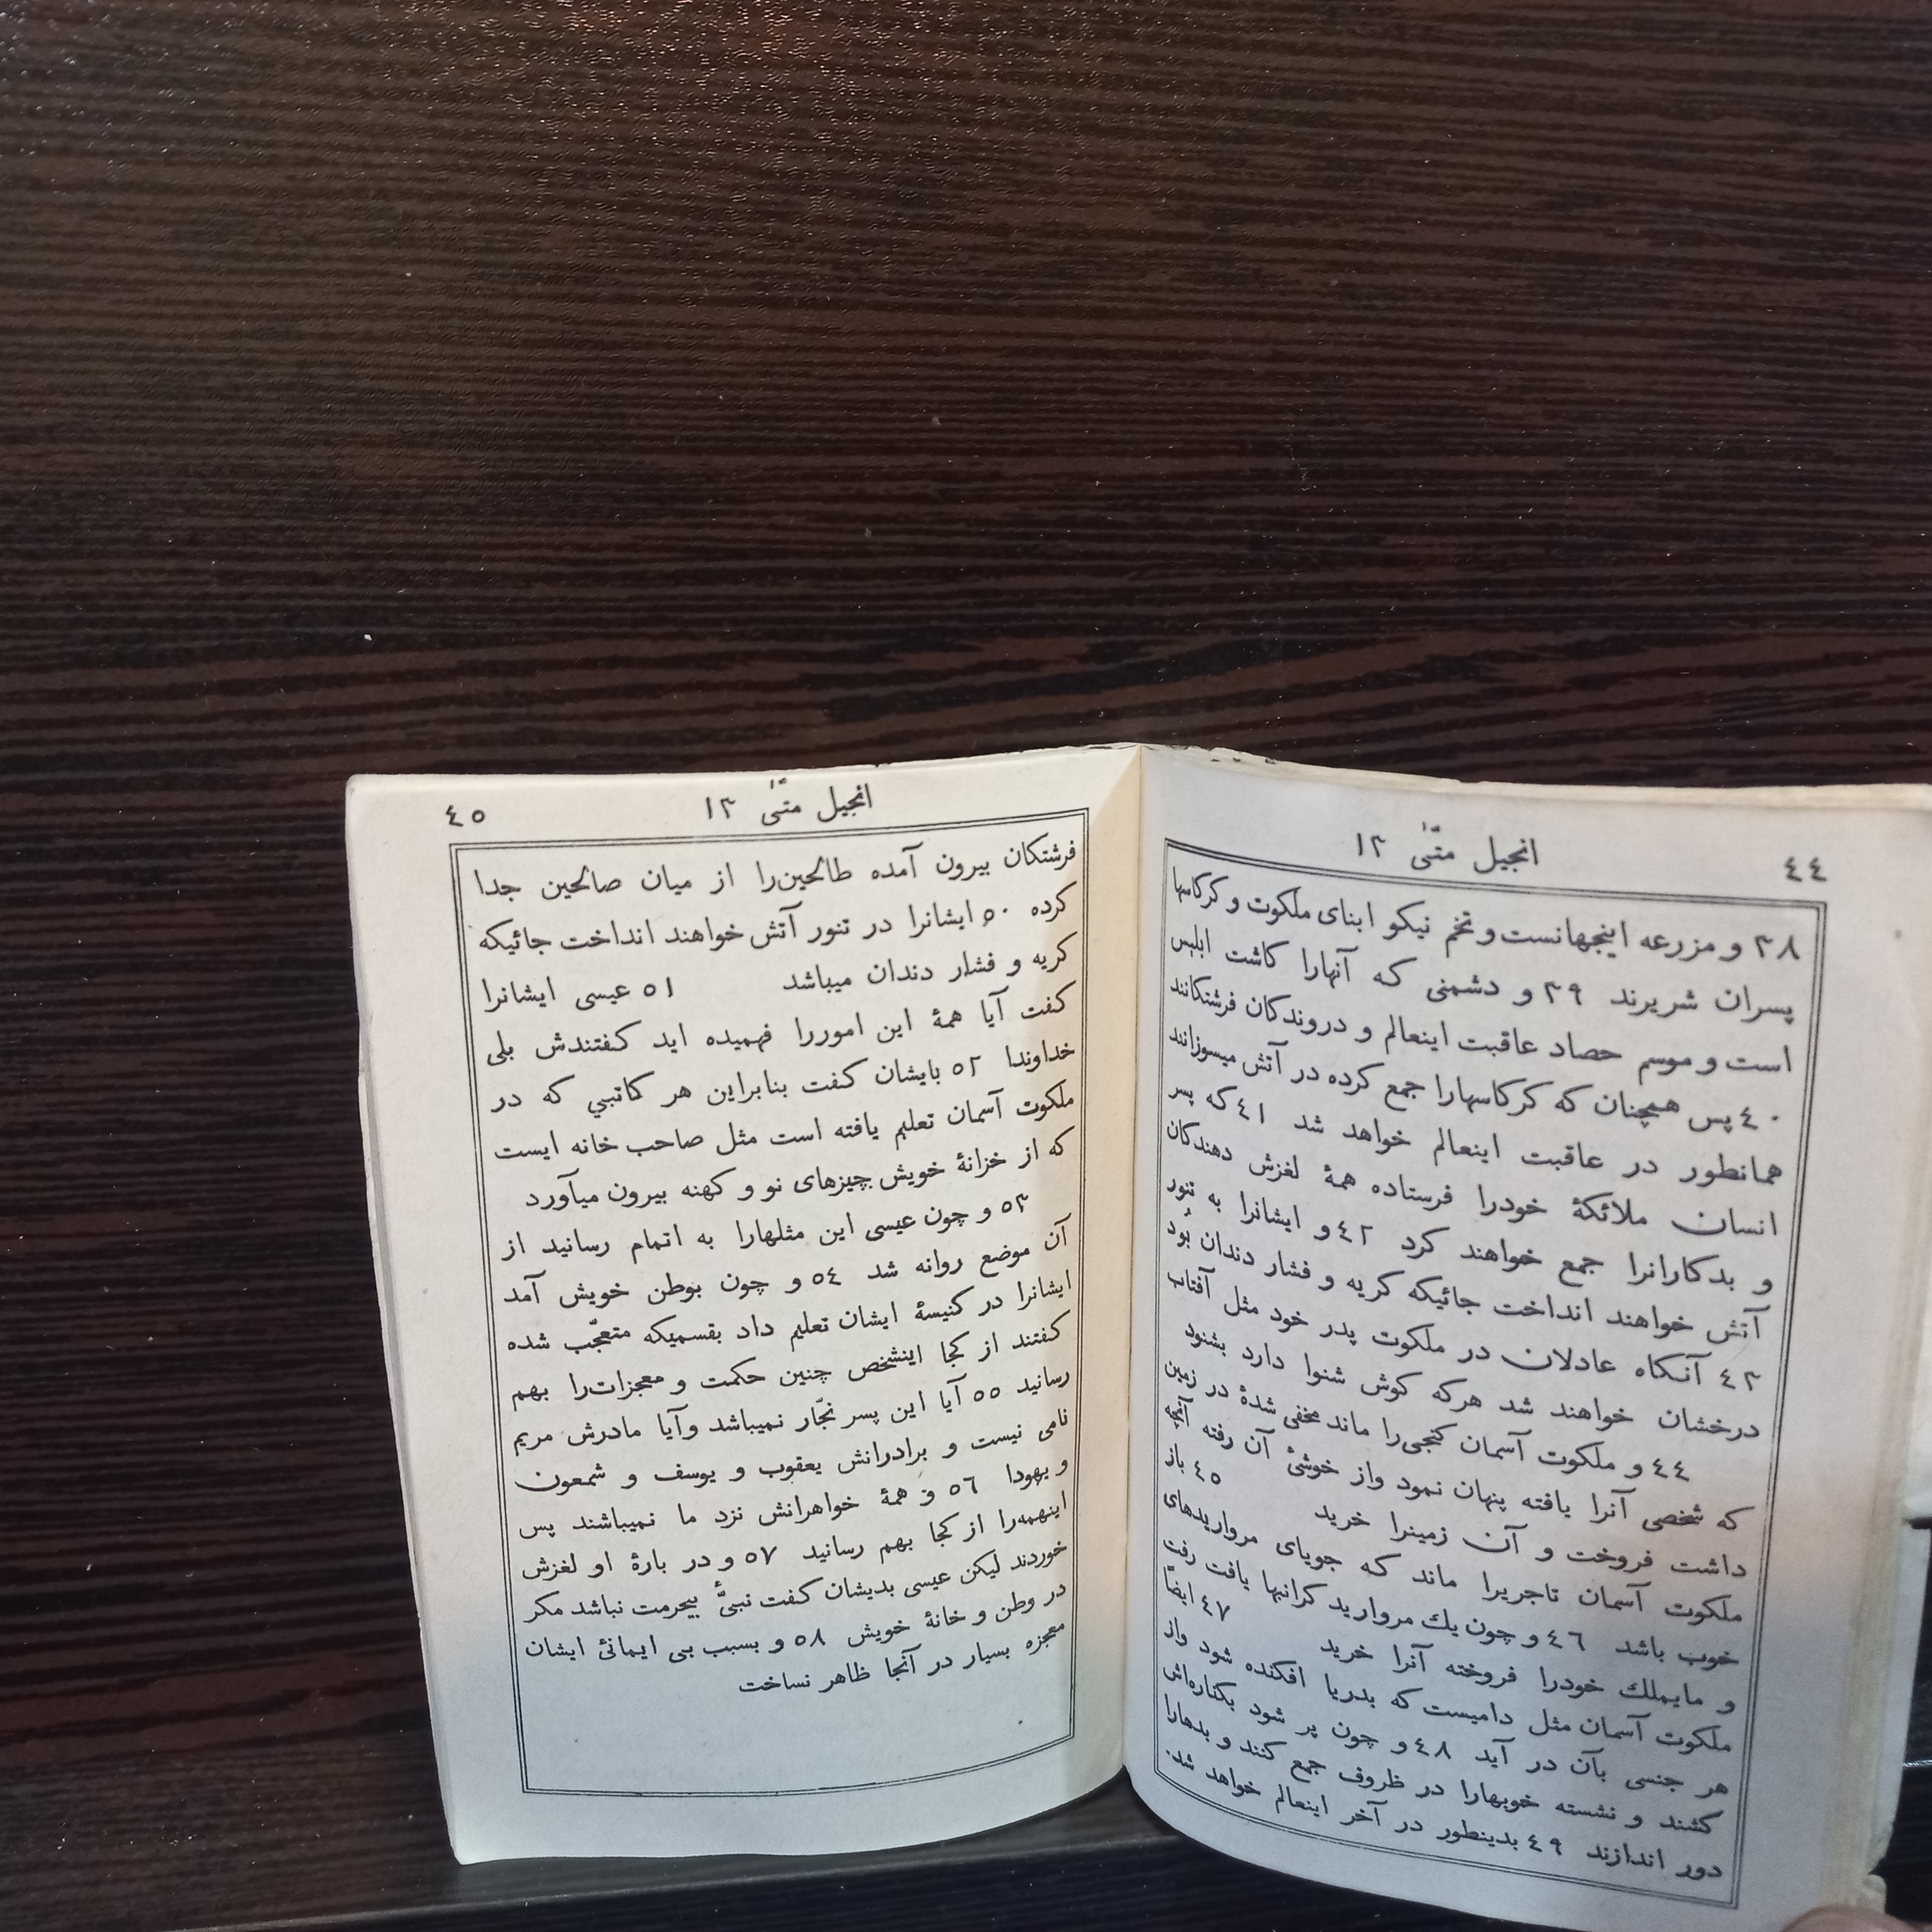 ٤٤ انجیل متّیٰ ۱۳
۳۸ و مزرعه اینجهانست و تخم نیکو ابنای ملکوت و کرکاسها
پسران شریرند ۳۹ و دشمنی که آنهارا کاشت ابلیس
است و موسم حصاد عاقبت اینعالم و دروندکان فرشتکانند
٤۰ پس همچنان که کرکاسهارا جمع کرده در آتش میسوزانند
همانطور در عاقبت اینعالم خواهد شد ٤۱ که پسر
انسان ملائکهٔ خودرا فرستاده همهٔ لغزش دهندکان
و بدکارانرا جمع خواهند کرد ٤۲ و ایشانرا به تنور
آتش خواهند انداخت جائیکه کریه و فشار دندان بُود
٤۳ آنکاه عادلان در ملکوت پدر خود مثل آفتاب
درخشان خواهند شد هرکه کوش شنوا دارد بشنود
٤٤ و ملکوت آسمان کنجی‌را ماند مخفی شدهٔ در زمین
که شخصی آنرا یافته پنهان نمود واز خوشیٔ آن رفته آنچه
داشت فروخت و آن زمینرا خرید ٤٥ باز
ملکوت آسمان تاجریرا ماند که جویای مرواریدهای
خوب باشد ٤٦ و چون یك مروارید کرانبها یافت رفت
و مایملك خودرا فروخته آنرا خرید ٤۷ ایضًا
ملکوت آسمان مثل دامیست که بدریا افکنده شود واز
هر جنسی بآن در آید ٤۸ و چون پر شود بکناره‌اش
کشند و نشسته خوبهارا در ظروف جمع کنند و بدهارا
دور اندازند ٤۹ بدینطور در آخر اینعالم خواهد شد.
انجیل متّیٰ ۱۳ ٤٥
فرشتکان بیرون آمده طالحین‌را از میان صالحین جدا
کرده ٥۰ ایشانرا در تنور آتش خواهند انداخت جائیکه
کریه و فشار دندان میباشد ٥۱ عیسی ایشانرا
کفت آیا همهٔ این اموررا فهمیده اید کفتندش بلی
خداوندا ٥۲ بایشان کفت بنابراین هر کاتبی که در
ملکوت آسمان تعلیم یافته است مثل صاحب خانه ایست
که از خزانهٔ خویش چیزهای نو و کهنه بیرون میآورد
٥۳ و چون عیسی این مثلهارا به اتمام رسانید از
آن موضع روانه شد ٥٤ و چون بوطن خویش آمد
ایشانرا در کنیسهٔ ایشان تعلیم داد بقسمیکه متعجّب شده
کفتند از کجا اینشخص چنین حکمت و معجزات‌را بهم
رسانید ٥٥ آیا این پسر نجّار نمیباشد وآیا مادرش مریم
نامی نیست و برادرانش یعقوب و یوسف و شمعون
و یهودا ٥٦ و همهٔ خواهرانش نزد ما نمیباشند پس
اینهمه‌را از کجا بهم رسانید ٥۷ و در بارهٔ او لغزش
خوردند لیکن عیسی بدیشان کفت نبیّٔ بیحرمت نباشد مکر
در وطن و خانهٔ خویش ٥۸ و بسبب بی ایمانیٔ ایشان
معجزه بسیار در آنجا ظاهر نساخت